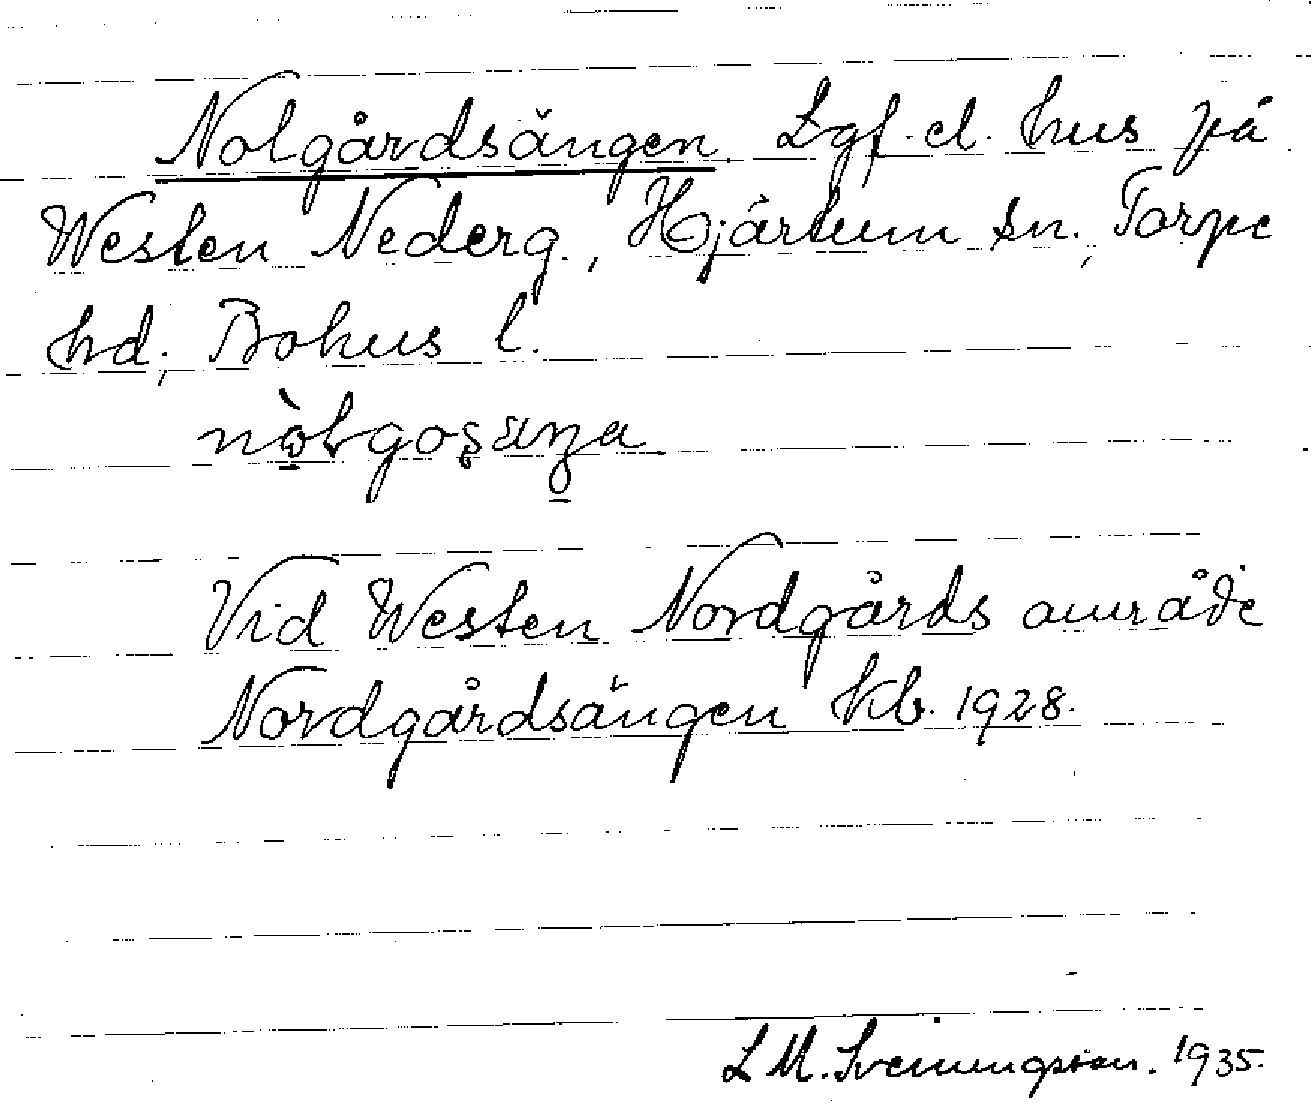 Nolgårdsängen. Lgf. el. hus på
Westen Nederg., Hjärtum sn., Torpe
hd., Bohus l.
Vid Westen Nordgårds område
Nordgårdsängen kb. 1928.
L M. Sveningsson. 1935.